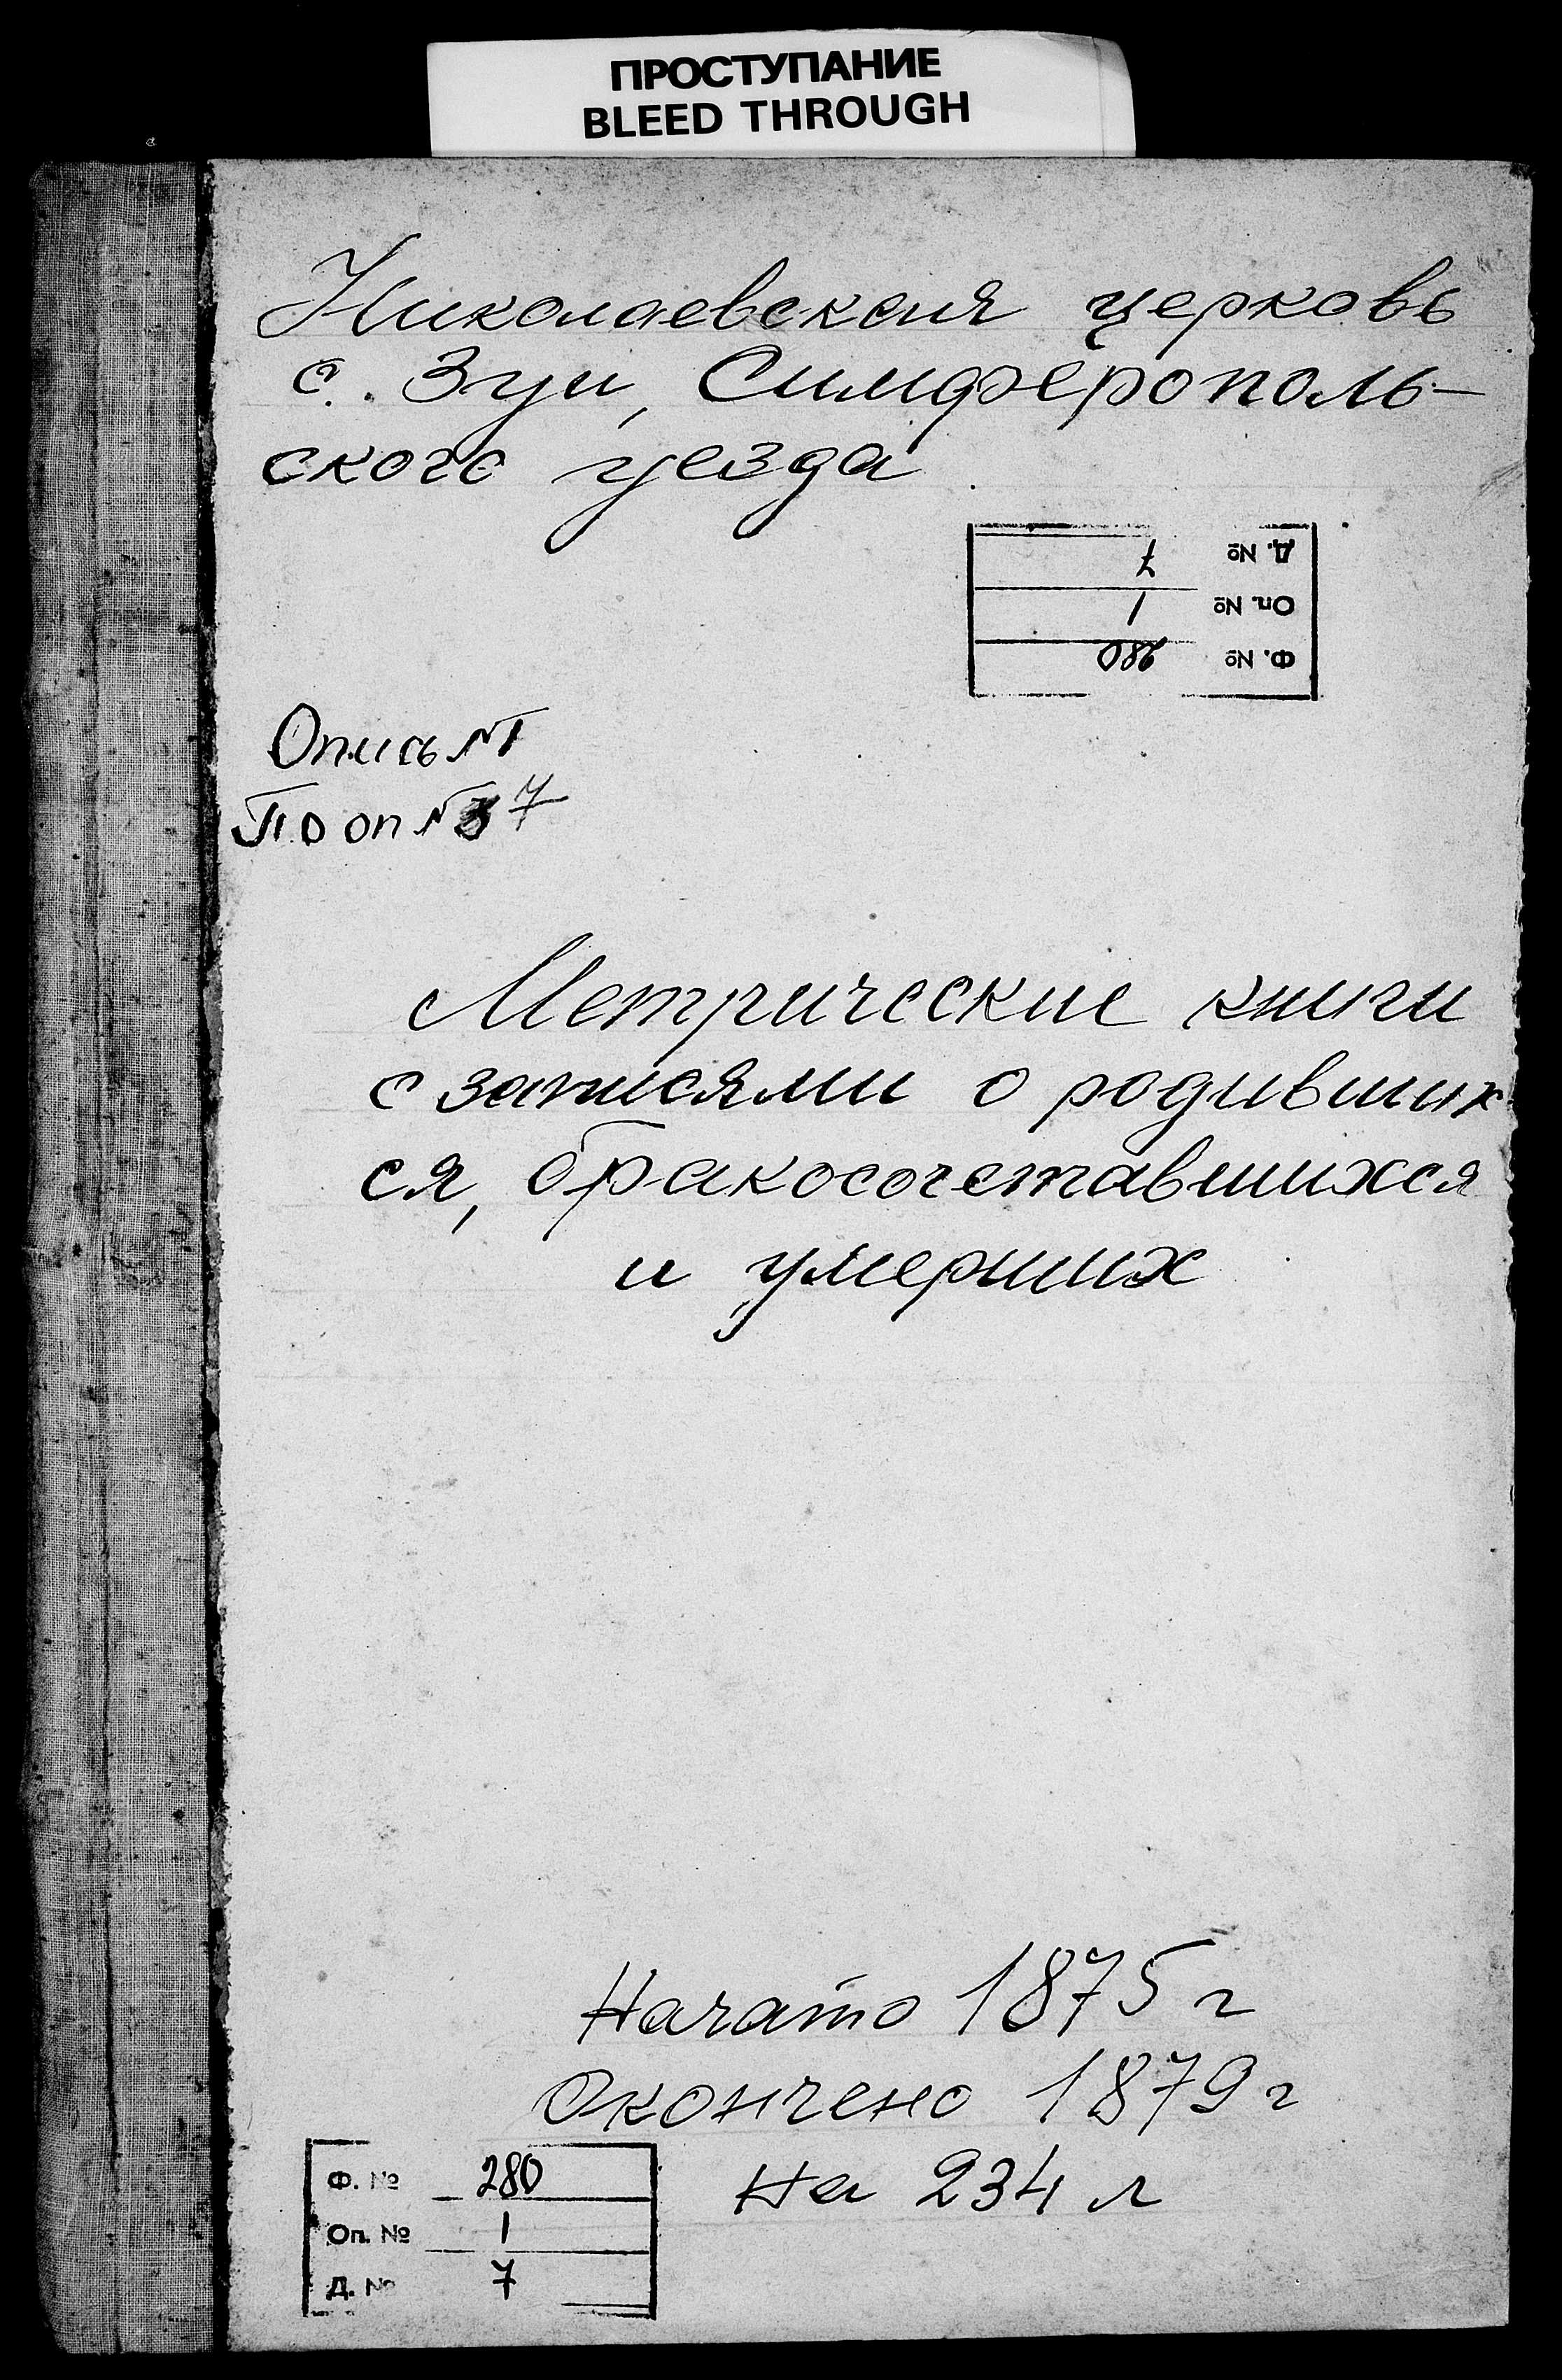 ПРОСТУПАНИЕ
BLEED THROUGH
Николаевская церковь
с. Зуи, Симферополь-
ского уезда
Д. № 7
Оп. № 1
Ф. № 280
Опись №1
По оп № 7
Метрические книги
с записями о родивших
ся, бракосочетавшихся
и умерших
Начато 1875 г
Окончено 1879 г
на 234 л
Ф. № 280
Оп. № 1
Д. № 7